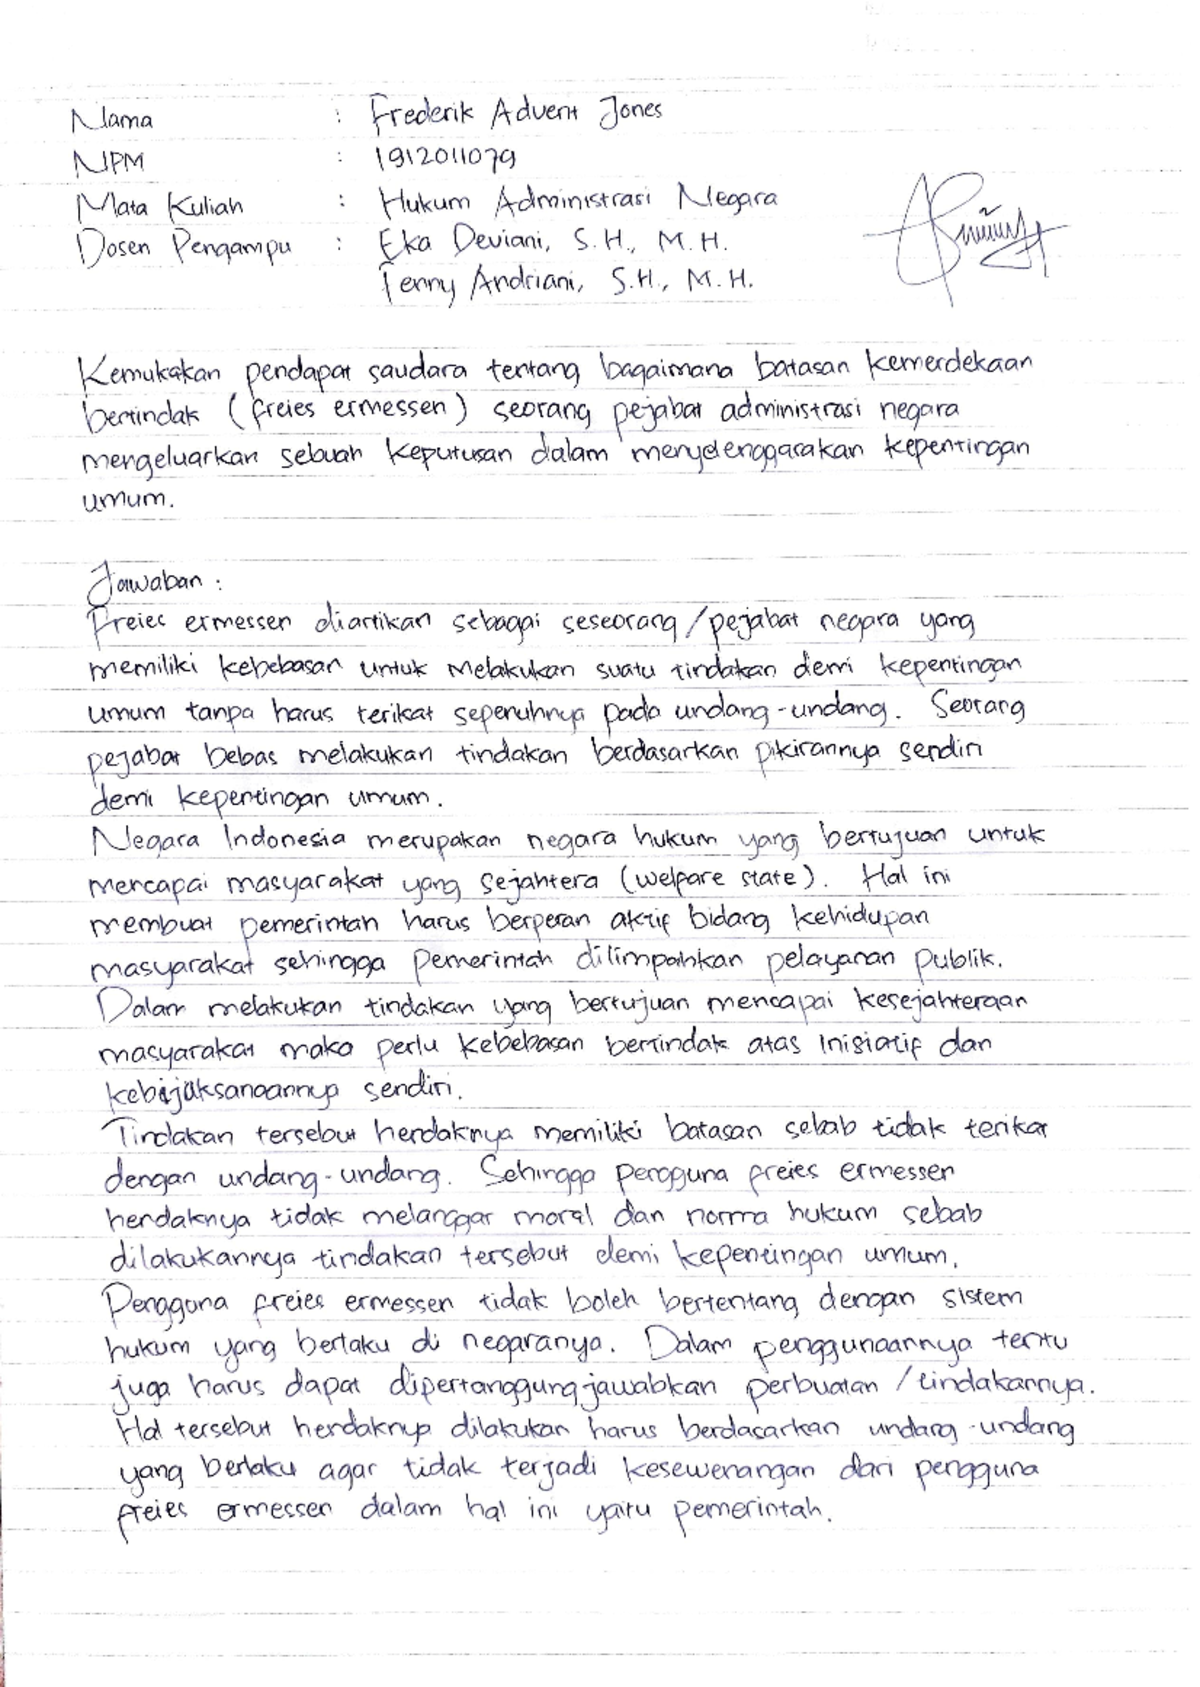 Nama : Frederik Advent Jones
NPM : 1912011079
Mata Kuliah : Hukum Administrasi Negara
Dosen Pengampu : Eka Deviani, S.H., M.H.
Fenny Andriani, S.H., M.H.
Kemukakan pendapat saudara tentang bagaimana batasan kemerdekaan
bertindak (freies ermessen) seorang pejabat administrasi negara
mengeluarkan sebuah keputusan dalam menyelenggarakan kepentingan
umum.
Jawaban :
Freies ermessen diartikan sebagai seseorang/pejabat negara yang
memiliki kebebasan untuk melakukan suatu tindakan demi kepentingan
umum tanpa harus terikat sepenuhnya pada undang-undang. Seorang
pejabat bebas melakukan tindakan berdasarkan pikirannya sendiri
demi kepentingan umum.
Negara Indonesia merupakan negara hukum yang bertujuan untuk
mencapai masyarakat yang sejahtera (welfare state). Hal ini
membuat pemerintah harus berperan aktif bidang kehidupan
masyarakat sehingga pemerintah dilimpahkan pelayanan publik.
Dalam melakukan tindakan yang bertujuan mencapai kesejahteraan
masyarakat maka perlu kebebasan bertindak atas inisiatif dan
kebijaksanaannya sendiri.
Tindakan tersebut hendaknya memiliki batasan sebab tidak terikat
dengan undang-undang. Sehingga pengguna freies ermessen
hendaknya tidak melanggar moral dan norma hukum sebab
dilakukannya tindakan tersebut demi kepentingan umum.
Pengguna freies ermessen tidak boleh bertentang dengan sistem
hukum yang berlaku di negaranya. Dalam penggunaannya tentu
juga harus dapat dipertanggungjawabkan perbuatan/tindakannya.
Hal tersebut hendaknya dilakukan harus berdasarkan undang-undang
yang berlaku agar tidak terjadi kesewenangan dari pengguna
freies ermessen dalam hal ini yaitu pemerintah.